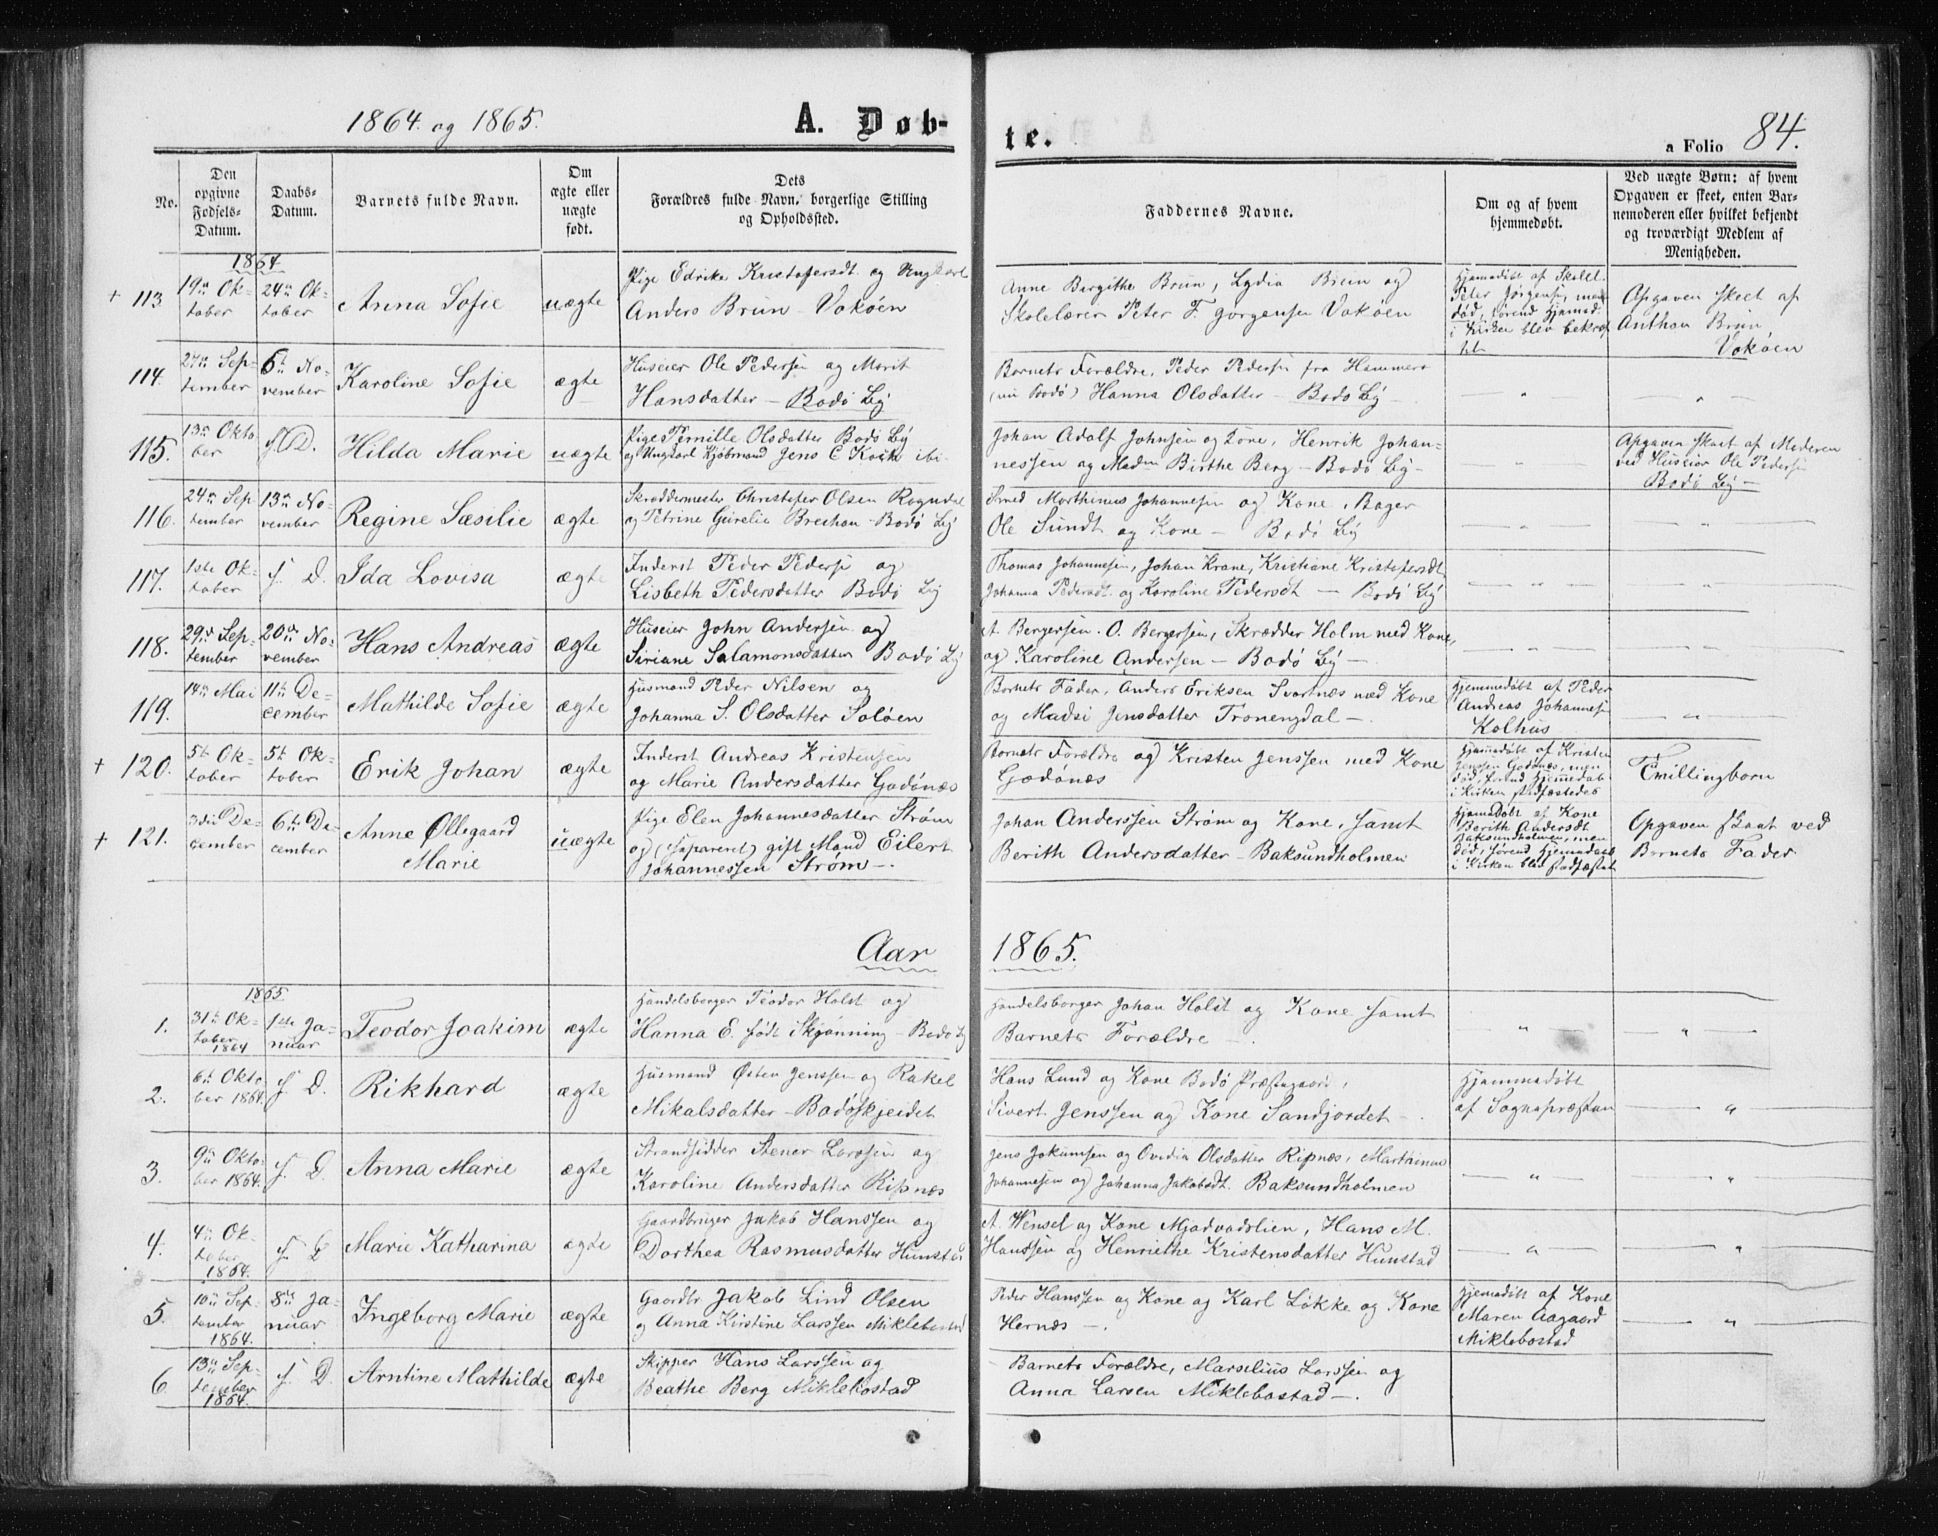 1864. og 1865.
A. Døb-
te.
a Folio 84.
No.
Den opgivne Fødsels-Datum.
Daabs-Datum.
Barnets fulde Navn.
Om ægte eller uægte født.
Dets Forældres fulde Navn, borgerlige Stilling og Opholdssted.
Faddernes Navne.
Om og af hvem hjemmedøbt.
Ved uægte Børn: af hvem Opgaven er skeet, enten Barnemoderen eller hvilket bekjendt og troværdigt Medlem af Menigheden.
1864
+ 113 19de Ok-
tober
24de Ok-
tober
Anna Sofie
uægte
Pige Edrike Kristofersdt. og Ungkarl
Anders Brun - Vokøen
Anne Birgithe Brun, Lydia Brun og
Skolelærer Peter F. Jørgensen Vokøen
Hjemmedøbt af Skolel.
Peter Jørgensen, men
død, førend Hjemmed.
i Kirken blev bekræf-
tet
Opgaven skeet af
Anthon Brun
Vokøen
114. 27de Sep-
tember
6te No-
vember
Karoline Sofie
ægte
Huseier Ole Pedersen og Marit
Hansdatter - Bodø By
Barnets Forældre, Peder Pedersen fra Hammerø
(nu Bodø) Hanna Olsdatter - Bodø By -
115. 13de Okto
ber
s. D.
Hilda Marie
uægte
Pige Pernille Olsdatter Bodø By
og Ungkarl Kjøbmand Jens C Koch ibi.
Johan Adolf Johnsen og Kone, Henrik Johan-
nessen og Madm Birthe Berg - Bodø By -
Opgaven skeet af Moderen
ved Huseier Ole Pedersen
Bodø By -
116. 24de Sep
tember
13de No-
vember
Regine Sæsilie
ægte
Skræddermester Christofer Olsen Rogndal
og Petrine Gurelia Brechan - Bodø By
Smed Morthinus Johannesen og Kone, Bager
Ole Sundt og Kone - Bodø By
117. 1ste Ok-
tober
s. D.
Ida Lovisa
ægte
Inderst Peder Pedersen og
Lisbeth Pedersdatter Bodø By
Thomas Johannesen, Johan Krane, Kristiane Kristofersdt
Johanna Pedersdt. og Karoline Pedersdt - Bodø By
118. 29de Sep-
tember
20de No-
vember
Hans Andreas
ægte
Huseier John Andersen og
Siriane Salamonsdatter Bodø By
A. Bergersen. O. Bergersen, Skrædder Holm med Kone,
og Karoline Andersen - Bodø By -
119. 14de Mai
11te De-
cember
Mathilde Sofie
ægte
Husmand Peder Nilsen og
Johanna S. Olsdatter Soløen
Barnets Fader, Anders Eriksen Svartnes med Kone
og Madsi Jensdatter Tronengdal -
Hjemmedøbt af Peder
Andreas Johannesen
Kolhus
+ 120. 5te Ok-
tober
5te Ok-
tober
Erik Johan
ægte
Inderst Andreas Kristensen
og Marie Andersdatter Godønæs
Barnets Forældre og Kristen Jenssen med Kone
Godønæs
Hjemmedøbt af Kristen
Jenssen Godønæs, men
død, førend Hjemmedaab
i Kirken stadfæstedes
Tvillingbarn
+ 121. 3die De-
cember
6te De-
cember
Anne Øllegaard
Marie
uægte
Pige Elen Johannesdatter Strøm
og (separeret) gift Mand Eilert
Johannessen Strøm -
Johan Anderssen Strøm og Kone, samt
Berith Andersdatter - Baksundholmen
Hjemmedøbt af Kone
Berith Andersdt.
Baksundholmen, men
død, førend Hjemmedaab
i Kirken blev stadfæstet
Opgaven skeet ved
Barnets Fader
Aar 1865.
1865
1. 31te Ok-
tober
1864
1ste Ja-
nuar
Teodor Joakim
ægte
Handelsborger Teodor Holst og
Hanna E. født Skjønning - Bodø By
Handelsborger Johan Holst og Kone samt
Barnets Forældre -
2. 6te Okto
ber 1864.
s. D.
Rikhard
ægte
Husmand Østen Jenssen og Rakel
Mikalsdatter - Bodøskjeidet
Hans Lund og Kone Bodø Præstegaard,
Sivert Jenssen og Kone Sandjordet -
Hjemmedøbt
af Sognepræsten
3. 9de Okto-
ber 1864.
s. D.
Anna Marie
ægte
Strandsidder Stener Larssen og
Karoline Andersdatter Ripnæs
Jens Jokumsen og Ovedia Olsdatter Ripnæs, Marthinus
Johannesen og Johanna Jakobsdt. Baksundholmen
4. 4de Ok-
tober
1864.
s. D.
Marie Katharina
ægte
Gaardbruger Jakob Hanssen og
Dorthea Rasmusdatter Hunstad
A. Wensel og Kone Mjadvadslien, Hans M.
Hanssen og Henriethe Kristensdatter Hunstad
5. 10de Sep-
tember
1864.
8de Ja-
nuar
Ingeborg Marie
ægte
Gaardbr Jakob Lind Olsen
og Anna Kirstine Larssen Miklebostad
Peder Hanssen og Kone og Karl Løkke og Kone
Hernæs -
Hjemmedøbt af Kone
Maren Aagaard
Miklebostad
6 13de Sep-
tember
1864.
s. D.
Arntine Mathilde
ægte
Skipper Hans Larssen og
Beathe Berg Miklebostad
Barnets Forældre, Marselius Larssen og
Anna Larsen Miklebostad -.